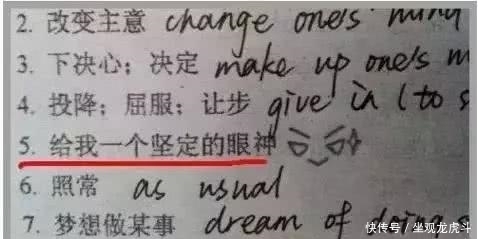 2. 改变主意 change one's mind
3. 下决心；决定 make up one's m
4. 投降；屈服；让步 give in (to s
5. 给我一个坚定的眼神
6. 照常 as usual
7. 梦想做某事 dream of doing s
快传号/坐观龙虎斗